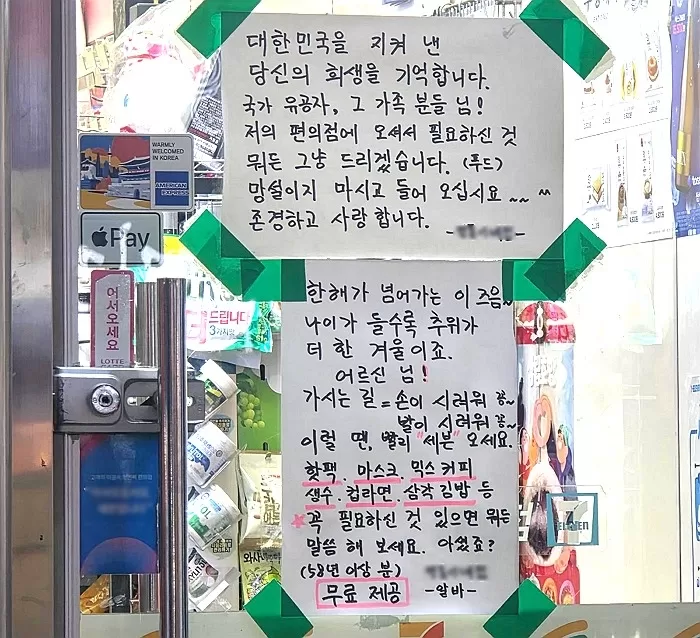 대한민국을 지켜 낸
당신의 희생을 기억합니다.
국가 유공자, 그 가족 분들 님!
저의 편의점에 오셔서 필요하신 것
뭐든 그냥 드리겠습니다. (푸드)
망설이지 마시고 들어 오십시요~~ ^^
존경하고 사랑합니다.
WARMLY
WELCOMED
IN KOREA
AMERICAN
EXPRESS
Pay
어서오세요
LOTTE
드립니다
한해가 넘어가는 이 즈음~
나이가 들수록 추위가
더 한 겨울이죠.
어르신 님!
가시는 길 = 손이 시려워 꽁~
발이 시려워 꽁~
이럴 땐, 빨리 "세븐" 오세요.
핫팩. 마스크 믹스커피
생수. 컵라면. 삼각김밥 등
꼭 필요하신 것 있으면 뭐든
말씀 해 보세요. 아셨죠?
(58년 이상 분)
무료 제공 -알바-